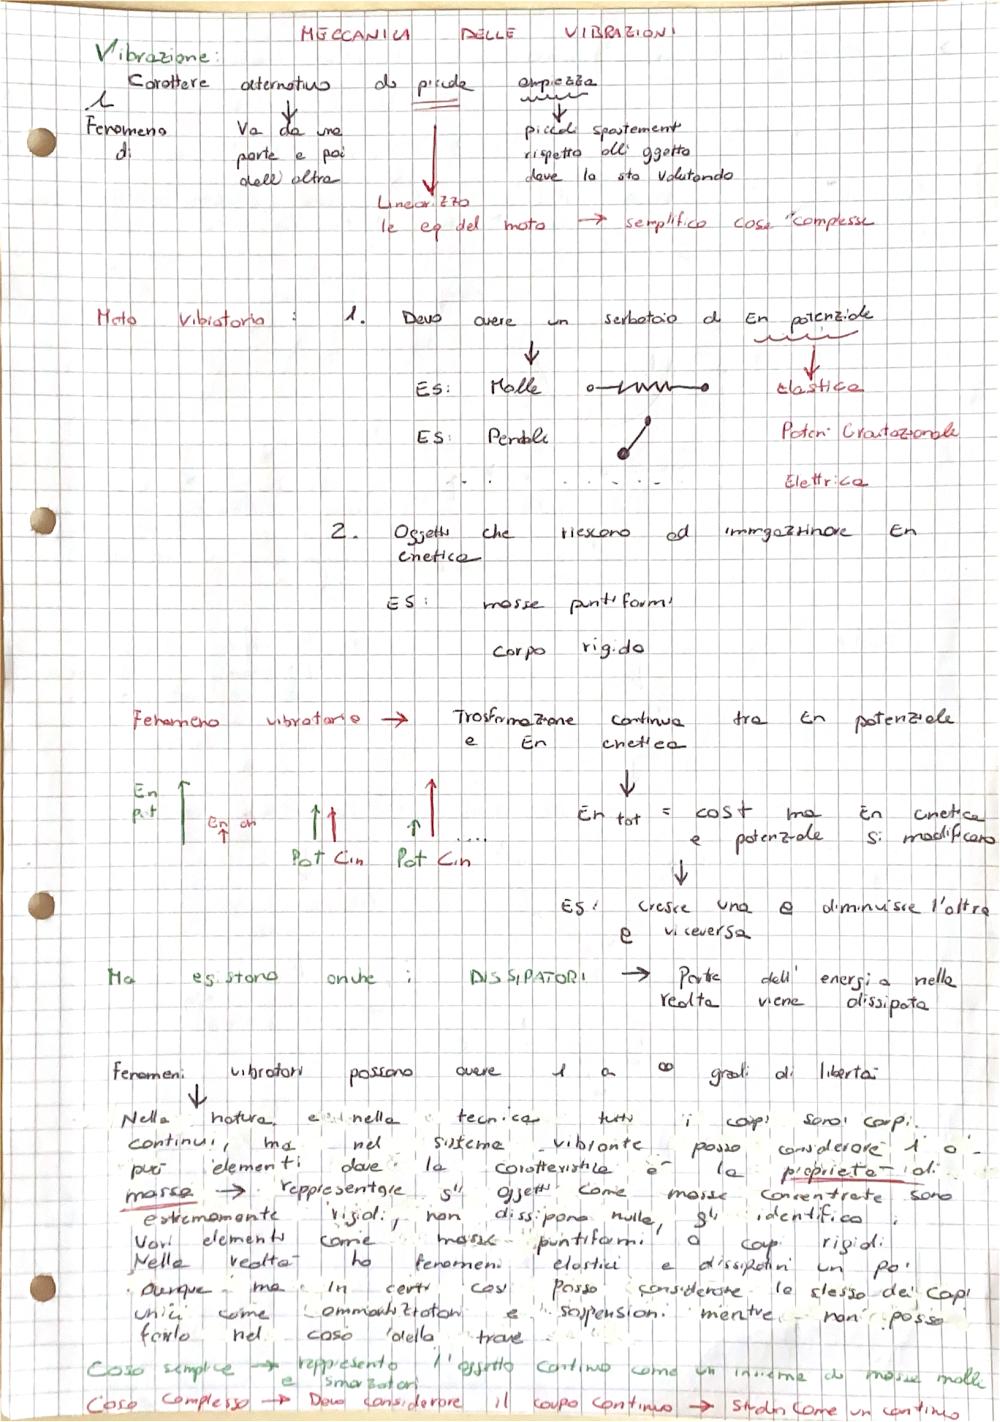 MECCANICA DELLE VIBRAZIONI
Vibrazione:
Carattere alternativo di piccola ampiezza
Fenomeno di
Va da una parte e poi dall'altra
piccoli spostamenti rispetto all'oggetto dove la sto valutando
Linearizzo
le eq del moto → semplifico cose "complesse
Moto vibratorio : 1. Devo avere un serbatoio di En potenziale
ES: Molle Elastica
ES: Pendoli Poten. Gravitazionale
. . . . . . . Elettrica
2. Oggetti che riescono ad immagazzinare En
cinetica
ES: masse puntiformi
corpo rigido
Fenomeno vibratorio → Trasformazione continua tra En potenziale
e En cinetica
En pot En cin Pot Cin Pot Cin ....
En tot = cost ma En cinetica
e potenziale si modificano
ES: cresce una e diminuisce l'altra
e viceversa
Ma esistono anche i DISSIPATORI → Parte dell'energia nella
realtà viene dissipata
Fenomeni vibratori possono avere 1 a ∞ gradi di libertà
Nella natura e nella tecnica tutti i corpi sono corpi
continui, ma nel sistema vibrante posso considerare 1 o
più elementi dove la caratteristica è la proprietà di
massa → rappresentare gli oggetti come masse concentrate sono
estremamente rigidi, non dissipano nulla, gli identifico i
vari elementi come masse puntiformi o corpi rigidi
Nella realtà ho fenomeni elastici e dissipativi un po'
ma in certi casi posso considerare lo stesso dei corpi
unici come ammortizzatori e sospensioni mentre non posso
farlo nel caso della trave
Caso semplice → rappresento l'oggetto continuo come un insieme di masse molle
e smorzatori
Caso complesso → Devo considerare il corpo continuo → come un continuo